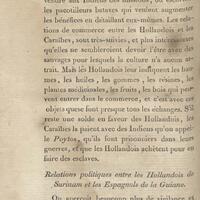 vendre aux Indiens des missions, ou excitent
les pacotilleurs bataves qui veulent augmenter
les bénéfices en détaillant eux-mêmes. Les rela-
tions de commerce entre les Hollandois et les
Caraïbes, sont très-suivies, et plus intéressantes
qu'elles ne sembleroient devoir l'être avec des
sauvages pour lesquels la culture n'a aucun at-
trait. Mais les Hollandois leur indiquent les bau-
mes, les huiles, les gommes, les résines, les
plantes médicinales, les fruits, les bois qui peu-
vent entrer dans le commerce, et c'est avec ces
objets que se font presque tous les échanges. S'il
reste une solde en faveur des Hollandois, les
Caraïbes la paient avec des Indiens qu'on appel-
le Poytos, qu'ils font prisonniers dans leurs
guerres, et que les Hollandois achètent pour en
faire des esclaves.
Relations politiques entre les Hollandois de
Surinam et les Espagnols de la Guiane.
On aperçoit beaucoup plus de vigilance et